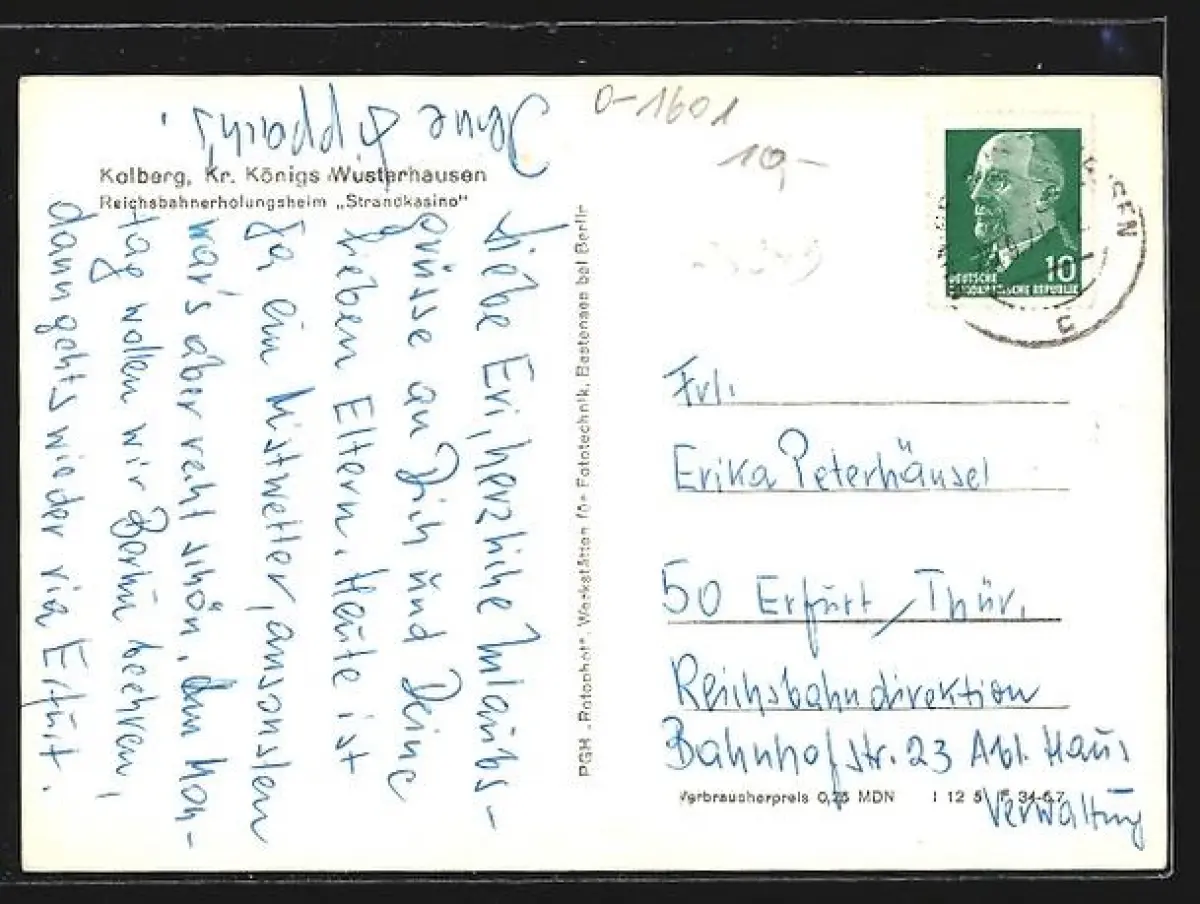 O-1601
10,-
Kolberg, Kr. Königs Wusterhausen
Reichsbahnerholungsheim „Strandkasino"
Liebe Eri, herzliche Urlaubs-
grüsse an Dich und Deine
lieben Eltern. Heute ist
ja ein Mistwetter, ansonsten
war's aber recht schön. Am Mon-
tag wollen wir Berlin beehren,
dann gehts wieder via Erfurt.
PGH „Rotophot", Werkstätten für Fototechnik, Bestensee bei Berlin
DEUTSCHE
DEMOKRATISCHE REPUBLIK
10
Frl.
Erika Peterhänsel
50 Erfurt / Thür.
Reichsbahndirektion
Bahnhofstr. 23 Abt. Haus
Verwaltung
Verbraucherpreis 0,25 MDN